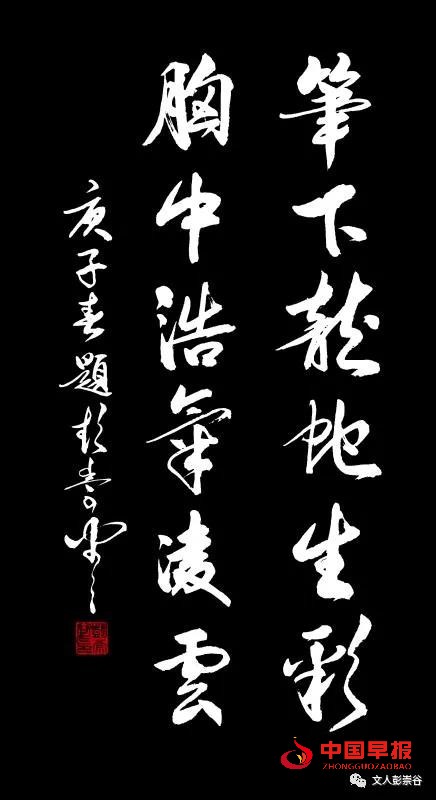 筆下龍蛇生彩
胸中浩氣凌雲
庚子春題彭崇谷
中国早报
ZHONGGUOZAOBAO
文人彭崇谷